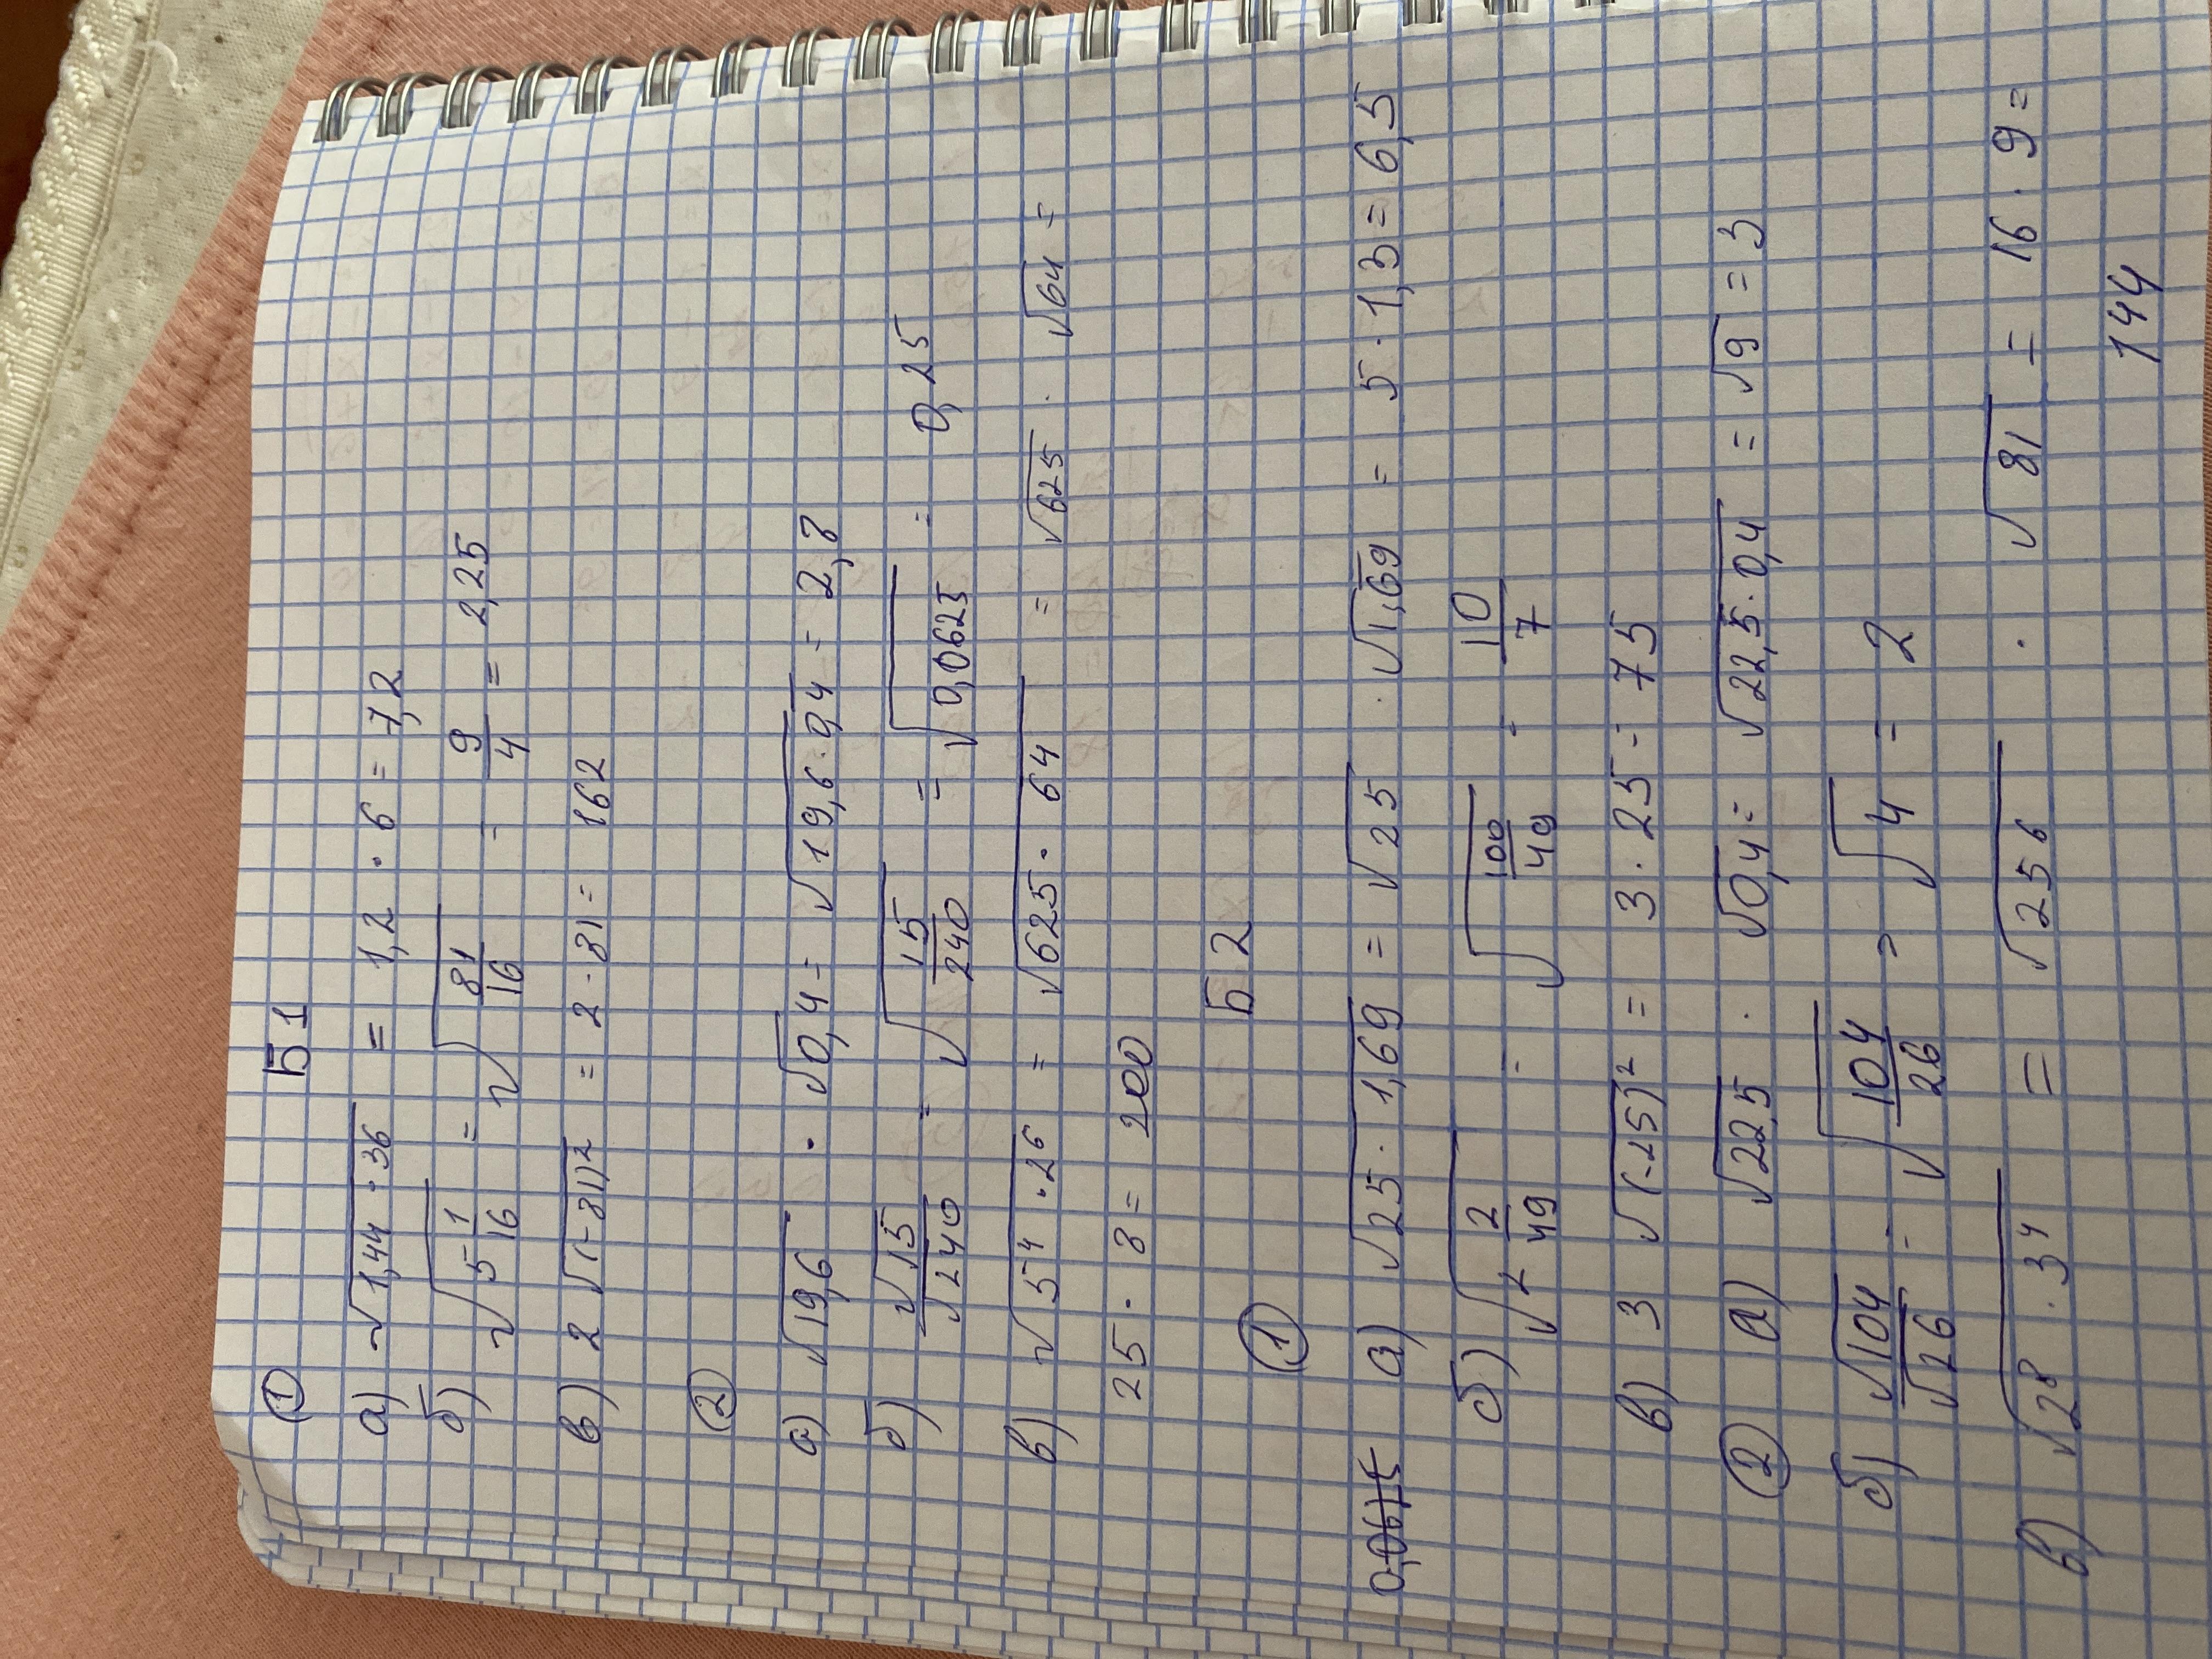 ① Б 1
а) √1,44 · 36 = 1,2 · 6 = 7,2
б) √5 1/16 = √81/16 = 9/4 = 2,25
в) 2 √(-81)² = 2 · 81 = 162
②
а) √19,6 · √0,4 = √19,6 · 0,4 = 2,8
б) √15/√240 = √15/240 = √0,0625 = 0,25
в) √5⁴ · 2⁶ = √625 · 64 = √625 · √64 =
25 · 8 = 200
Б 2
①
0,0615 а) √25 · 1,69 = √25 · √1,69 = 5 · 1,3 = 6,5
б) √2 2/49 = √100/49 = 10/7
в) 3 √(-25)² = 3 · 25 = 75
② а) √22,5 · √0,4 = √22,5 · 0,4 = √9 = 3
б) √104/√26 = √104/26 = √4 = 2
в) √2⁸ · 3⁴ = √256 · √81 = 16 · 9 =
144